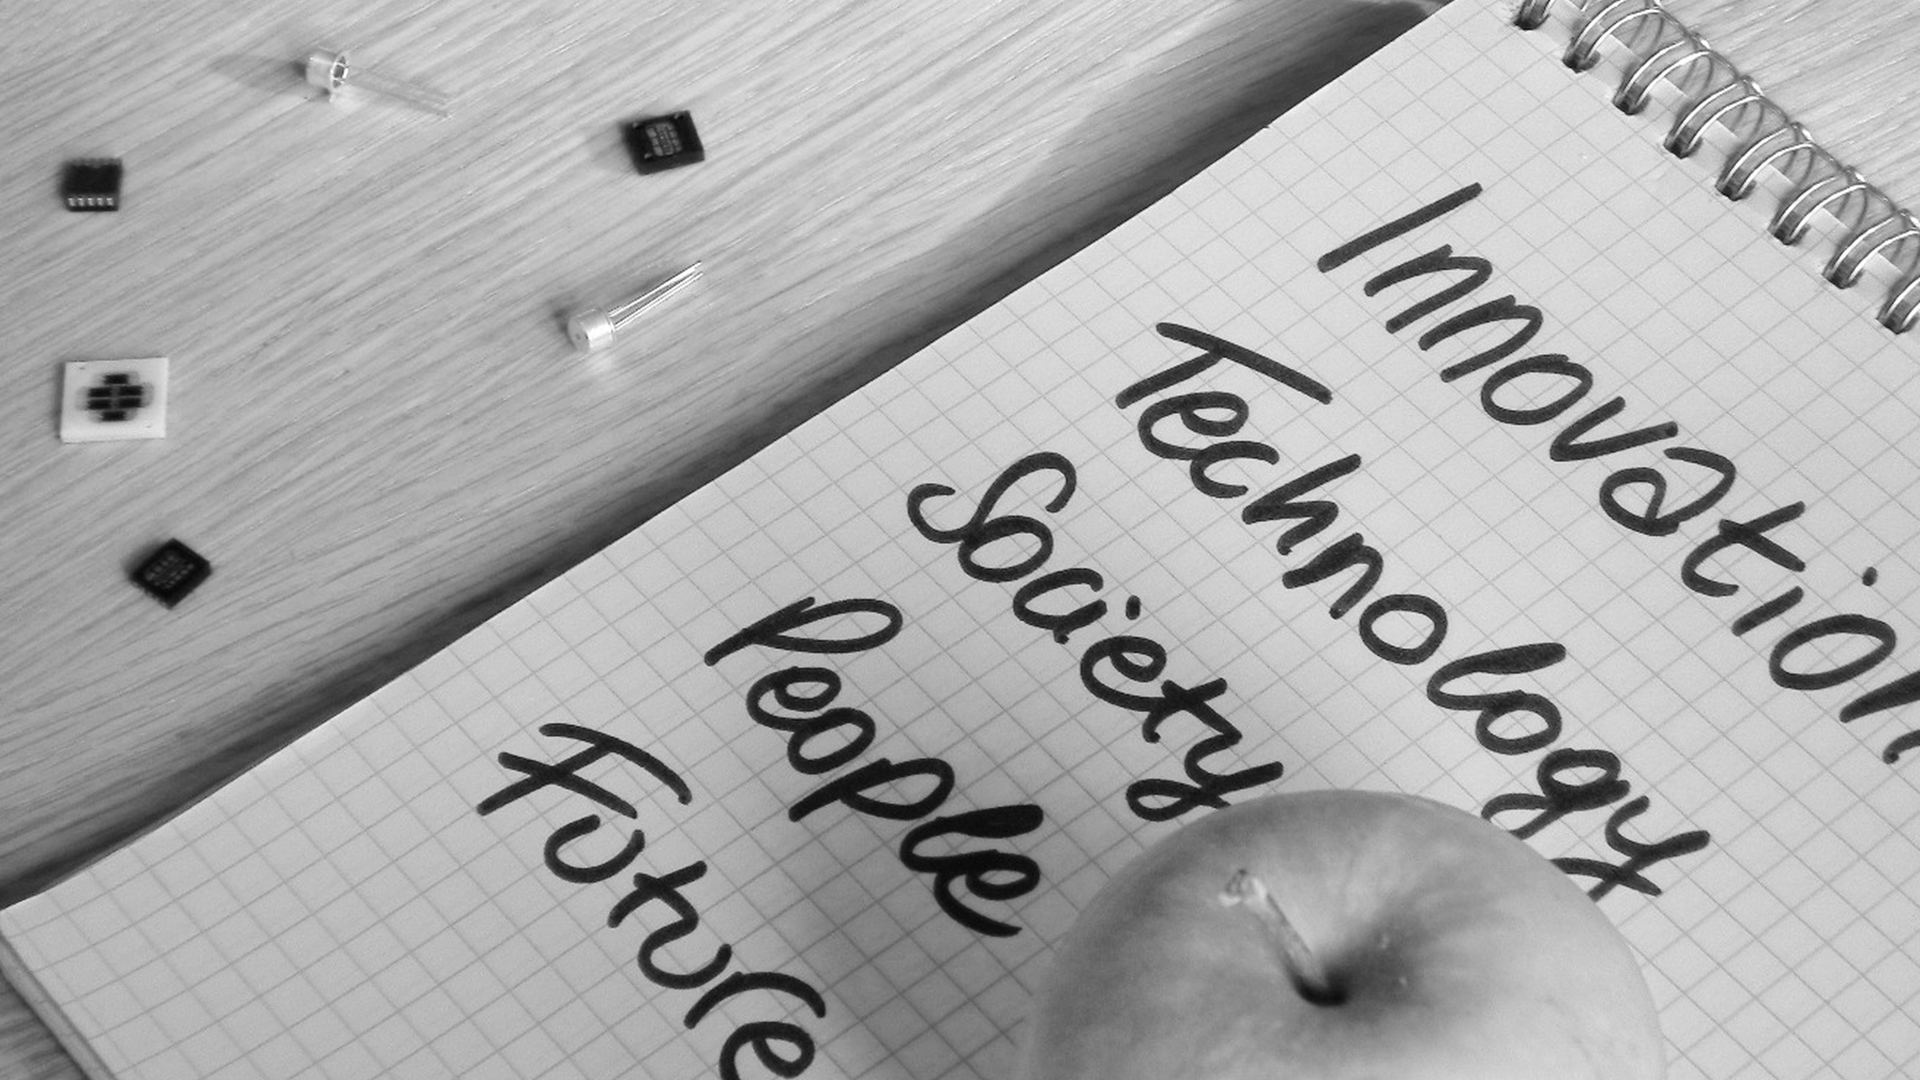 Innovation
Technology
Society
People
Future